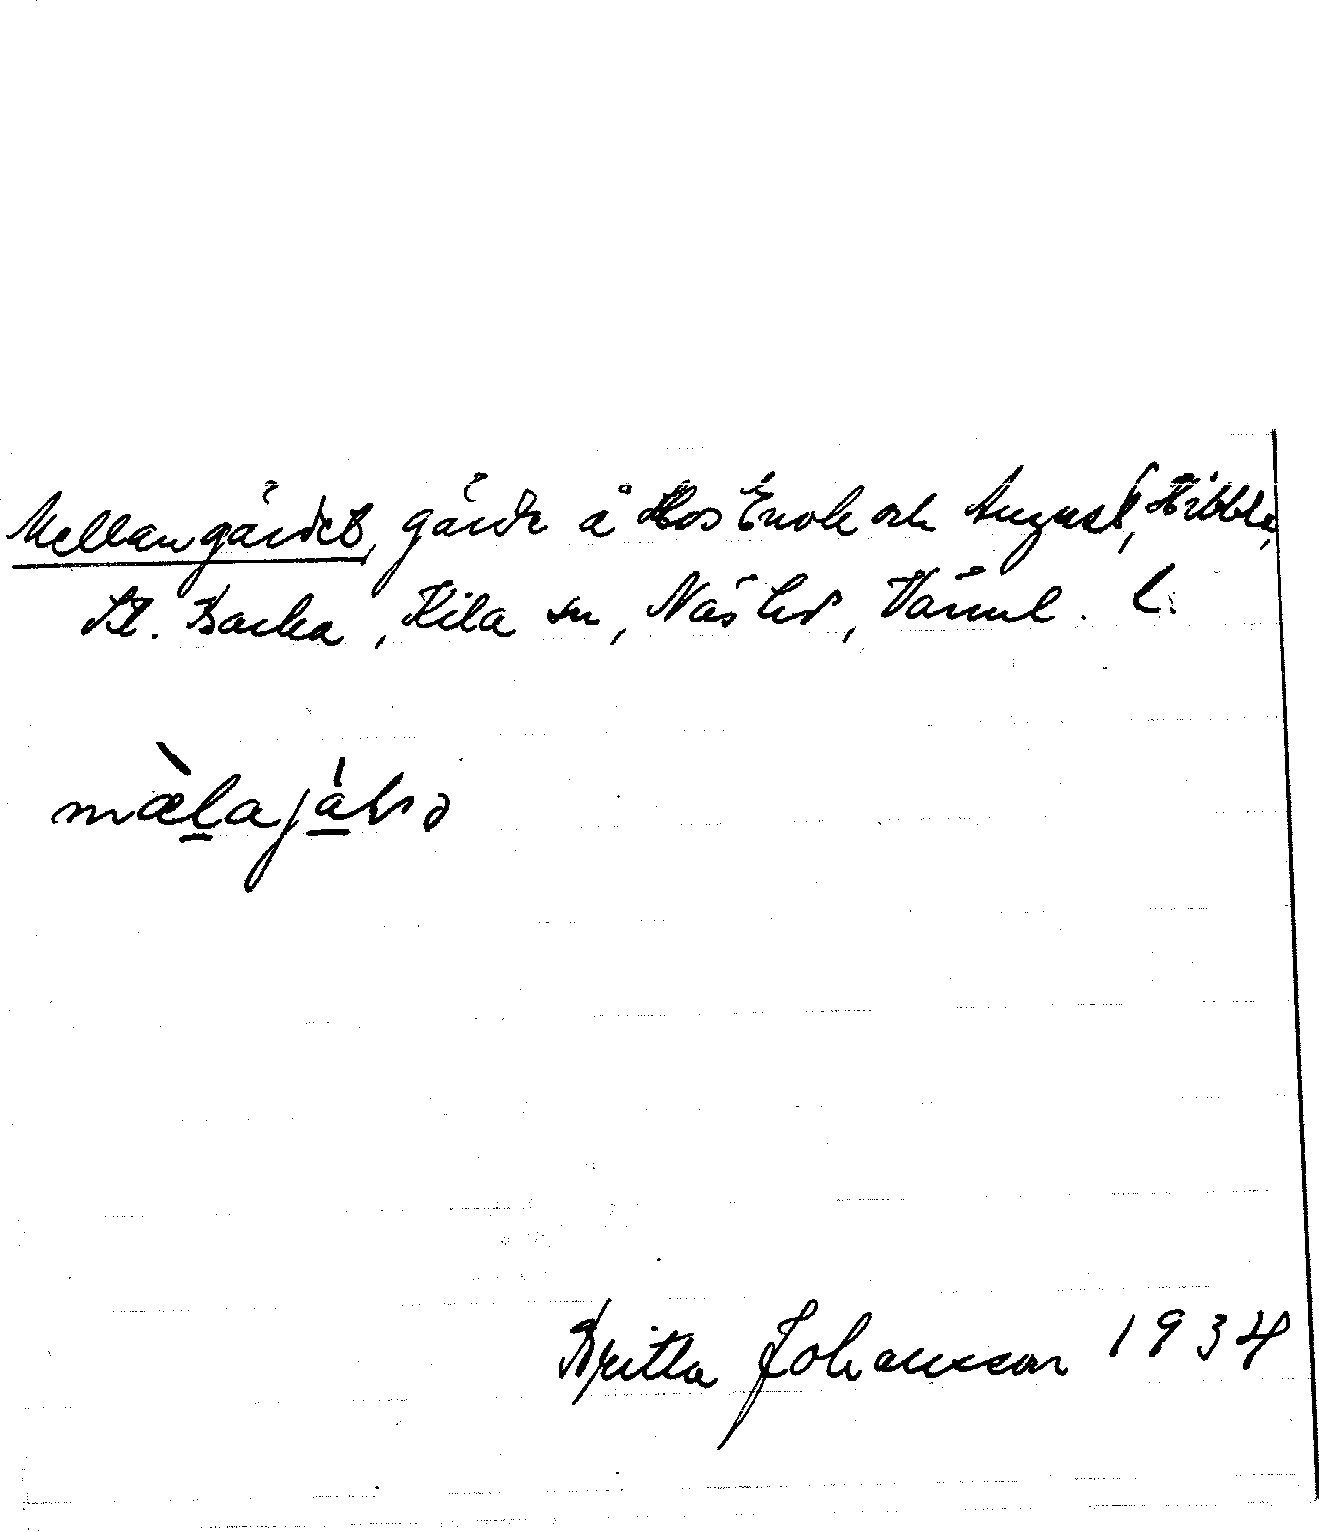 Mellangärdet, gärde å Hos Enok och August, Hibbla,
St. Backa, Kila sn, Näs hd, Värml.
Britta Johansson 1934